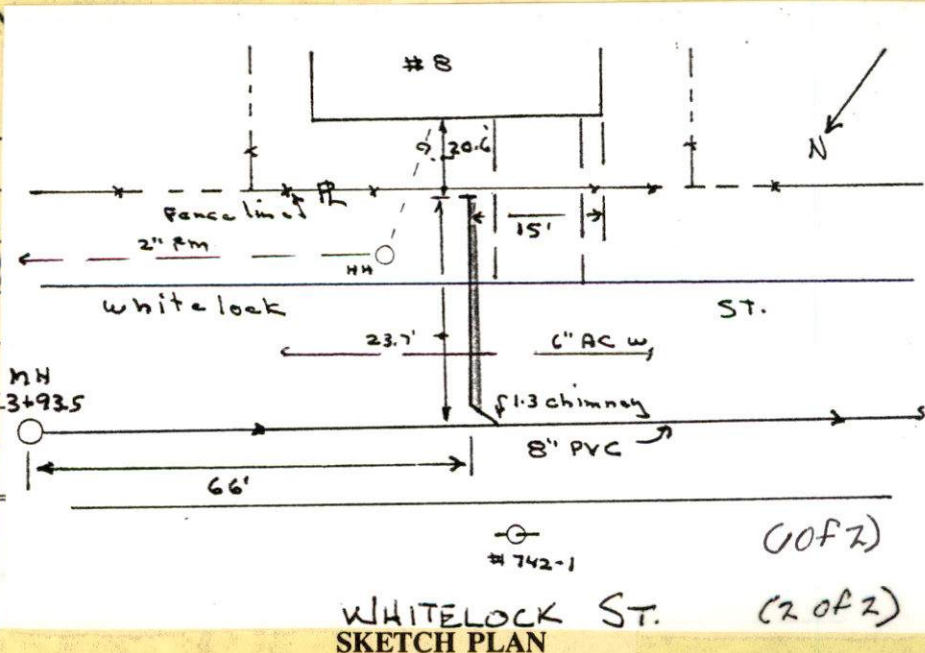 # 8
20.6'
N
Fence line
PL
15'
2" FM
HH
Whitelock ST.
23.7'
6" AC W
MH
3+93.5
1.3 chimney
8" PVC
66'
# 742-1
(1 of 2)
WHITELOCK ST. (2 of 2)
SKETCH PLAN